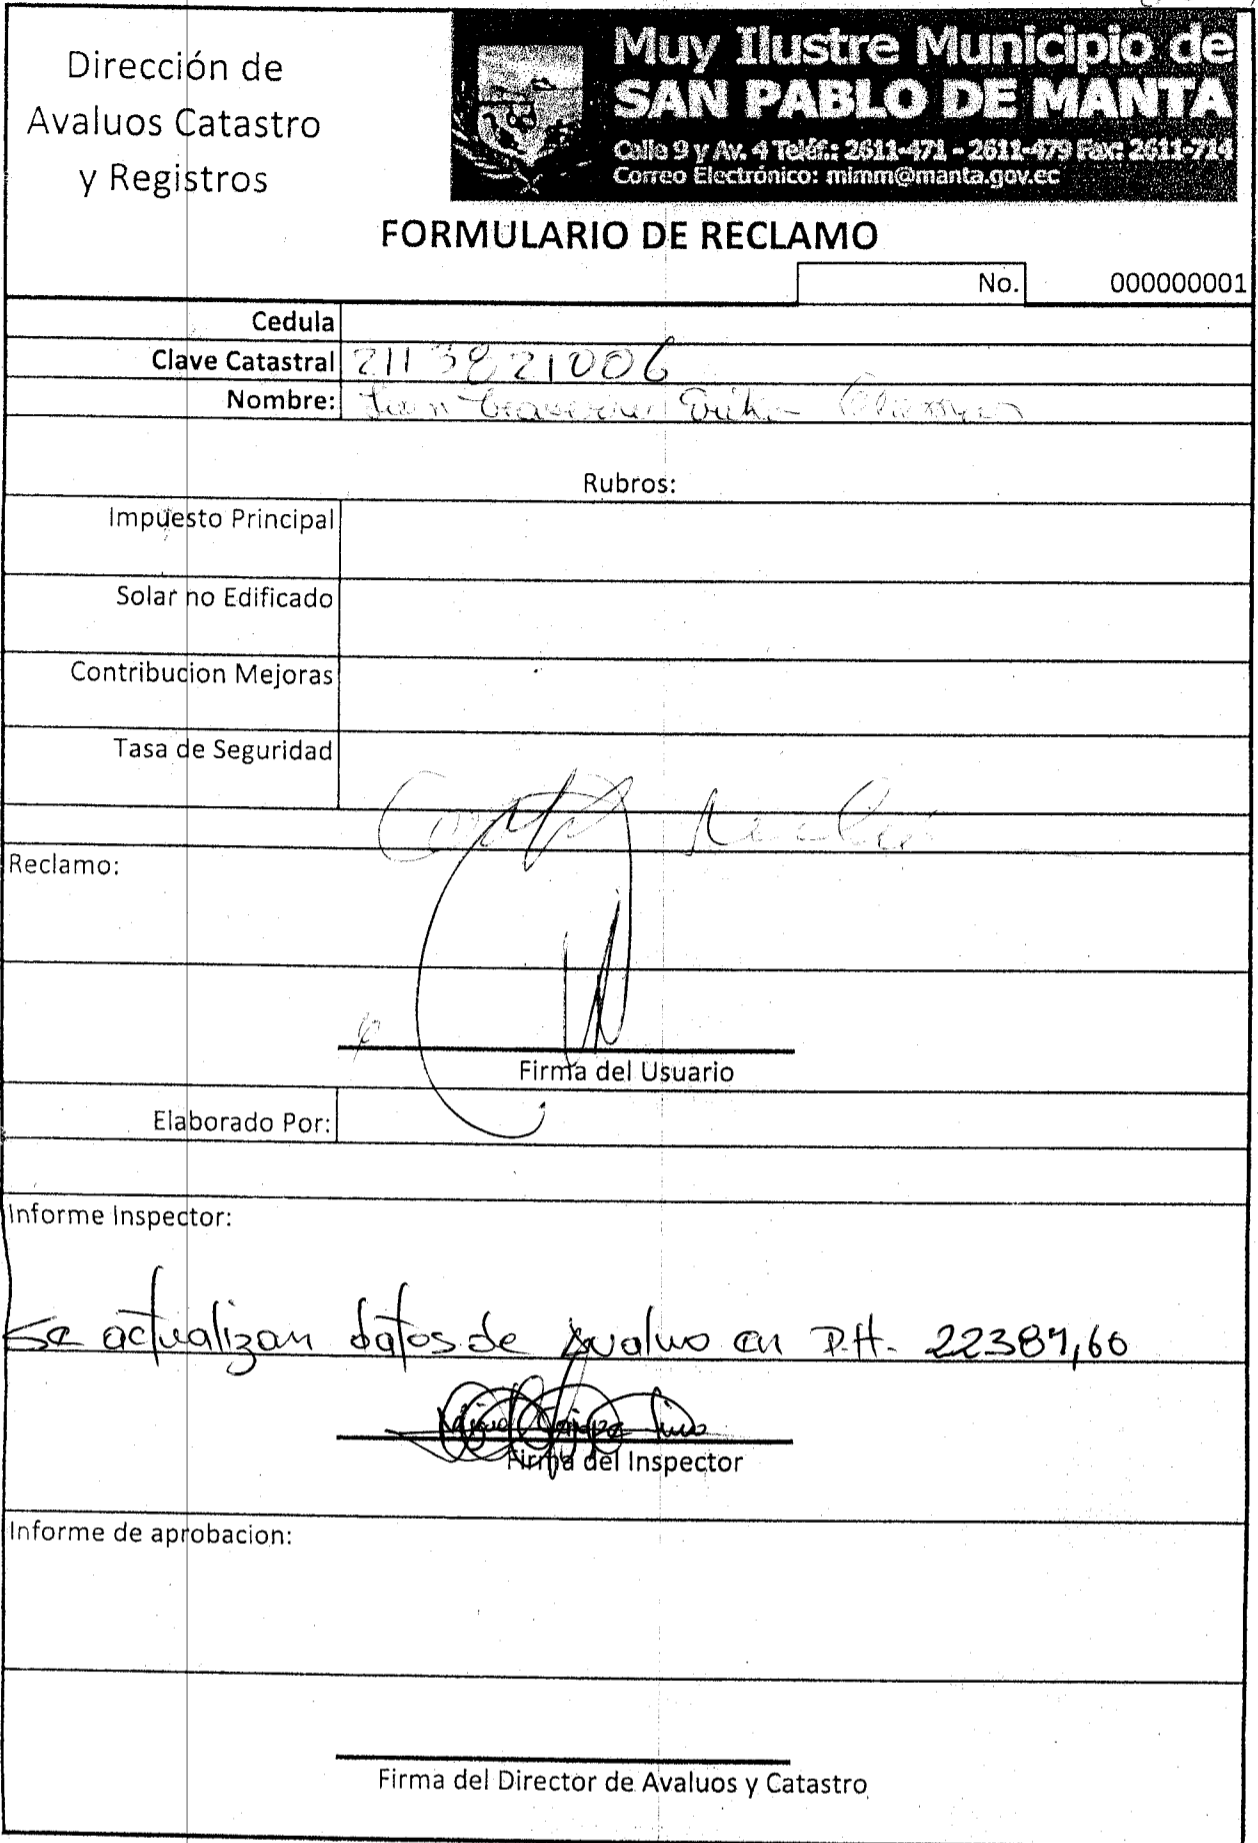 Dirección de
Avaluos Catastro
y Registros
Muy Ilustre Municipio de
SAN PABLO DE MANTA
Calle 9 y Av. 4 Teléf.: 2611-471 - 2611-479 Fax: 2611-714
Correo Electrónico: mimm@manta.gov.ec
FORMULARIO DE RECLAMO
No. 000000001
Cedula
Clave Catastral 2113821006
Nombre:
Rubros:
Impuesto Principal
Solar no Edificado
Contribucion Mejoras
Tasa de Seguridad
Reclamo:
Firma del Usuario
Elaborado Por:
Informe Inspector:
Se actualizan datos de avaluo en P.H. 22387,60
Firma del Inspector
Informe de aprobacion:
Firma del Director de Avaluos y Catastro